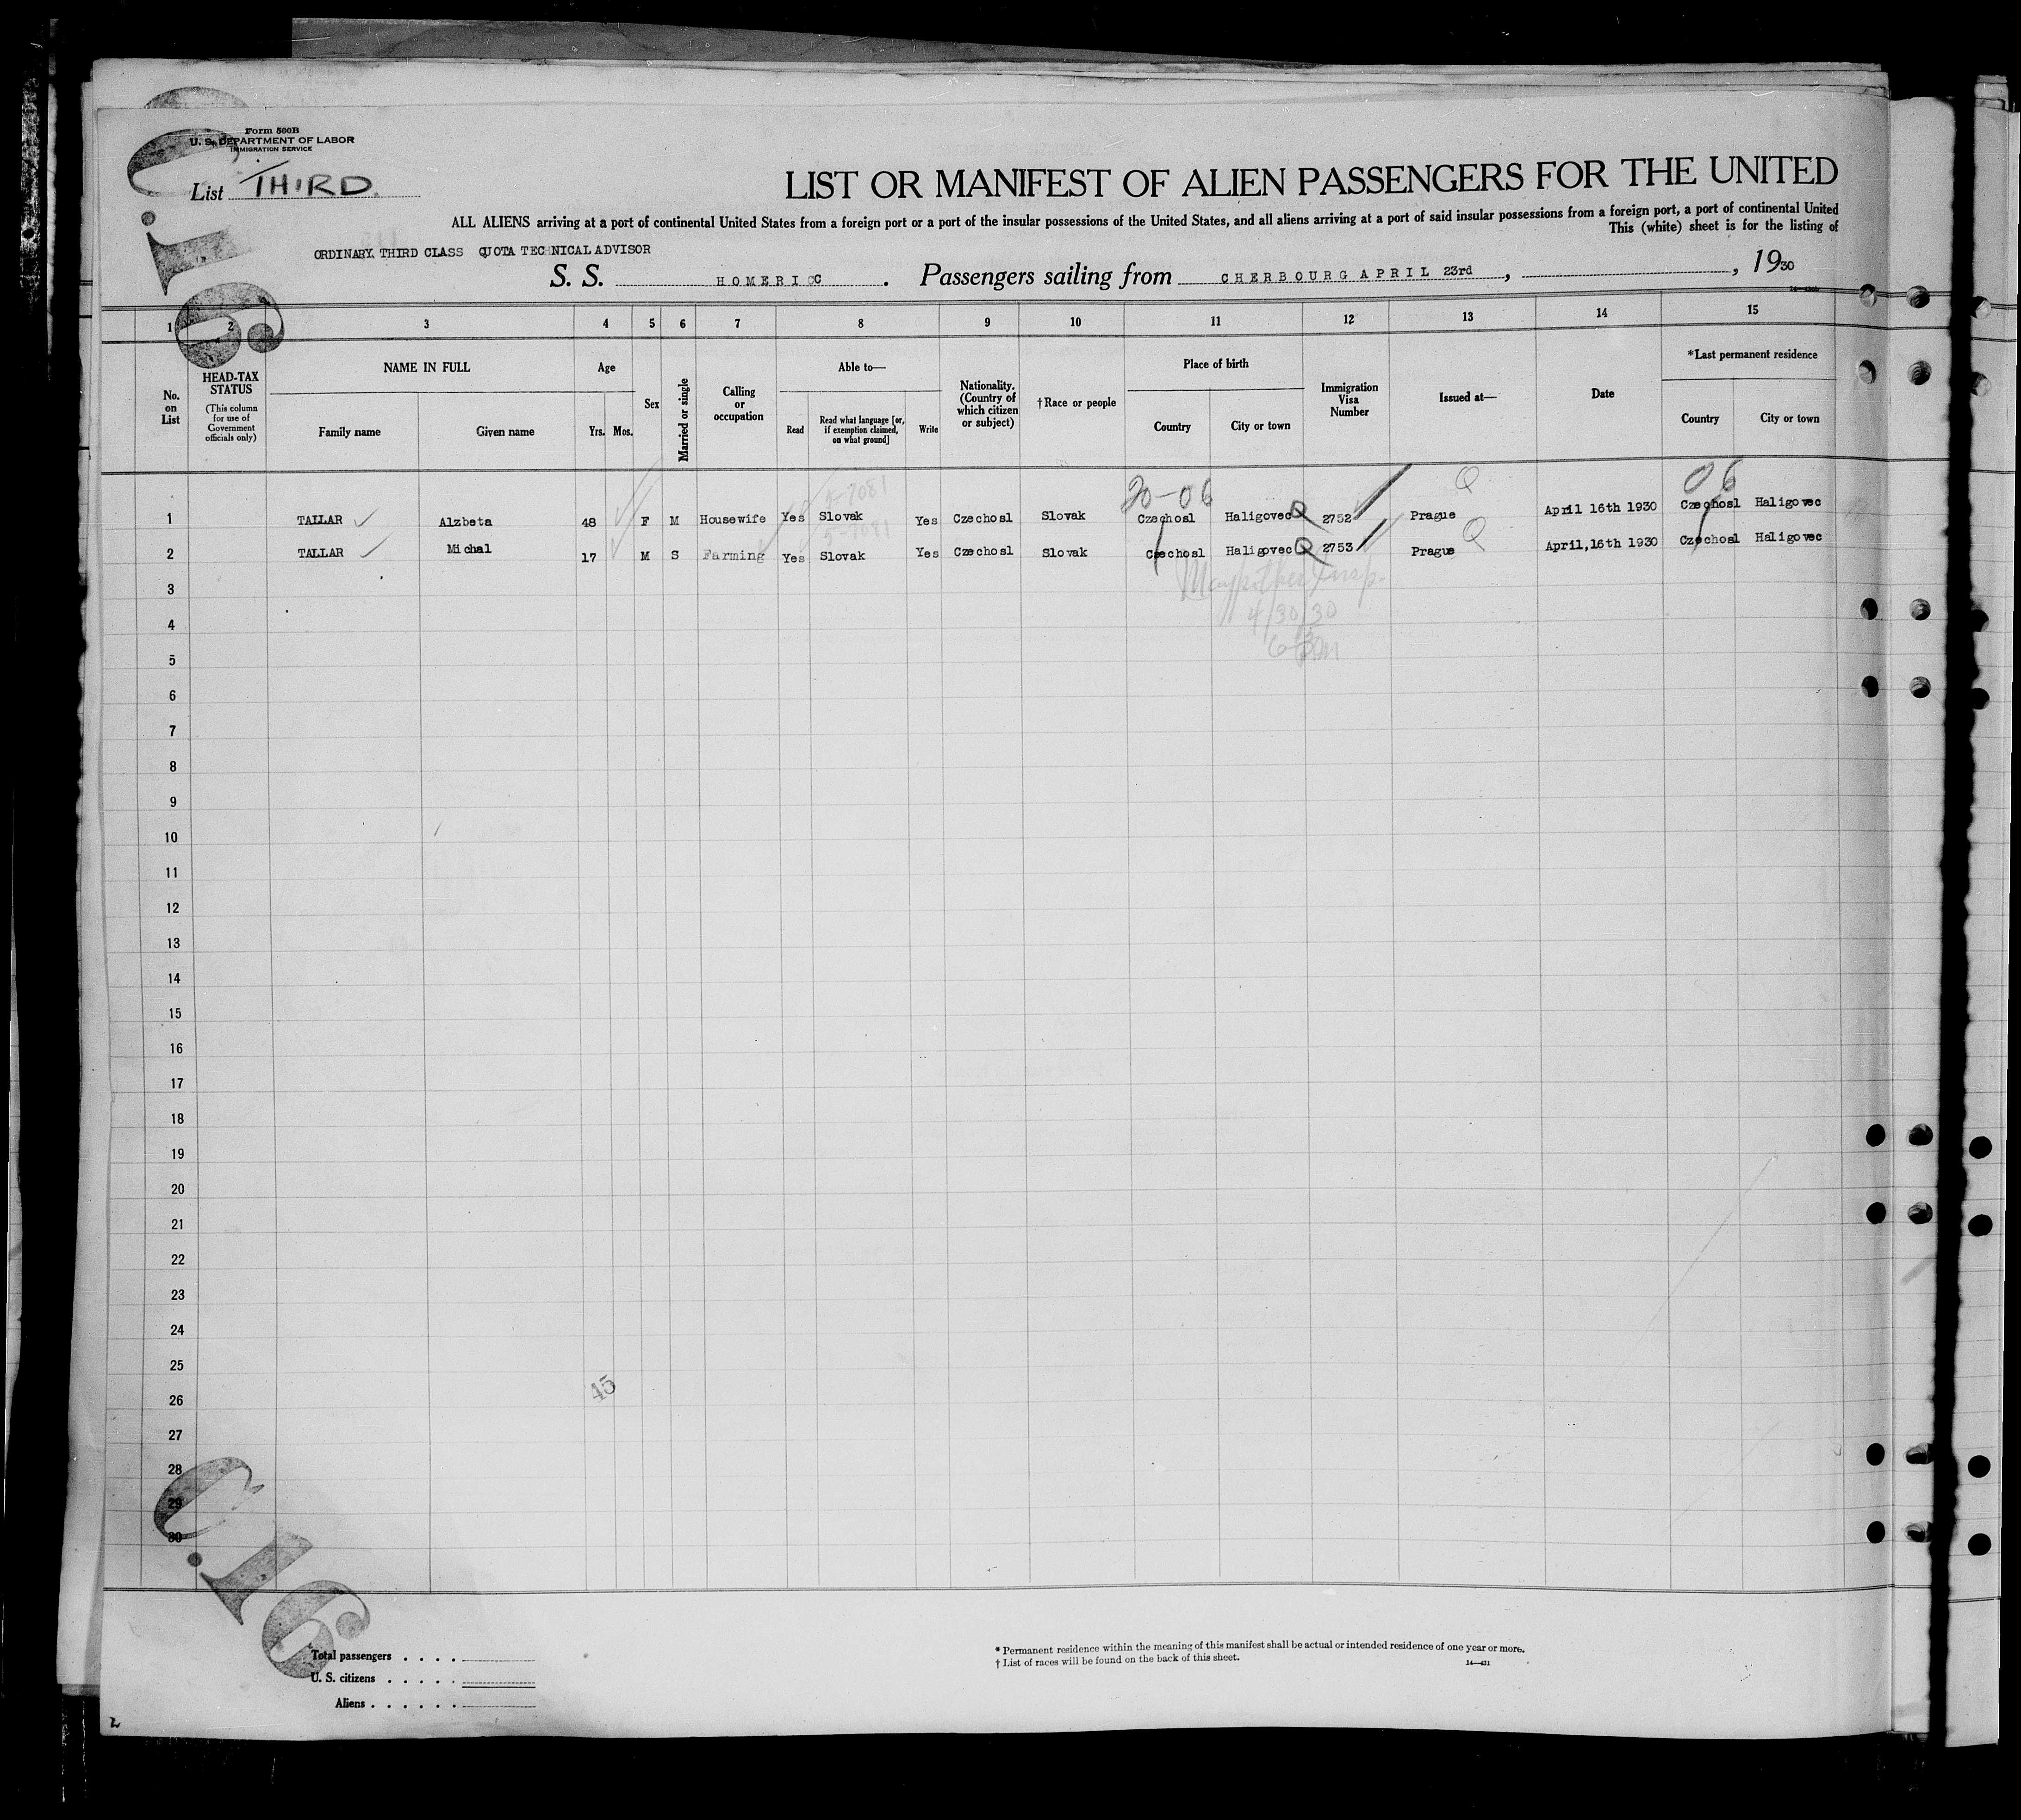 Form 500B
U. S. DEPARTMENT OF LABOR
IMMIGRATION SERVICE
List THIRD.
LIST OR MANIFEST OF ALIEN PASSENGERS FOR THE UNITED
ALL ALIENS arriving at a port of continental United States from a foreign port or a port of the insular possessions of the United States, and all aliens arriving at a port of said insular possessions from a foreign port, a port of continental United
This (white) sheet is for the listing of
ORDINARY. THIRD CLASS QUOTA TECHNICAL ADVISOR
S. S. HOMERIC . Passengers sailing from CHERBOURG APRIL 23rd , , 1930
1 2 3 4 5 6 7 8 9 10 11 12 13 14 15
No. on List
HEAD-TAX STATUS
(This column for use of Government officials only)
NAME IN FULL
Family name
Given name
Age
Yrs. Mos.
Sex
Married or single
Calling or occupation
Able to—
Read
Read what language [or, if exemption claimed, on what ground]
Write
Nationality. (Country of which citizen or subject)
†Race or people
Place of birth
Country
City or town
Immigration Visa Number
Issued at—
Date
*Last permanent residence
Country
City or town
20-06 Q 06
1 TALLAR Alzbeta 48 F M Housewife Yes Slovak Yes Czechosl Slovak Czechosl Haligovec Q 2752 Prague April 16th 1930 Czechosl Haligovec
2 TALLAR Michal 17 M S Farming Yes Slovak Yes Czechosl Slovak Czechosl Haligovec Q 2753 Prague Q April,16th 1930 Czechosl Haligovec
4/30/30
3
4
5
6
7
8
9
10
11
12
13
14
15
16
17
18
19
20
21
22
23
24
25
26
27
28
29
30
45
C.16
C.16
Total passengers . . . .
U. S. citizens . . . . .
Aliens . . . . . .
* Permanent residence within the meaning of this manifest shall be actual or intended residence of one year or more.
† List of races will be found on the back of this sheet.
14—431
2